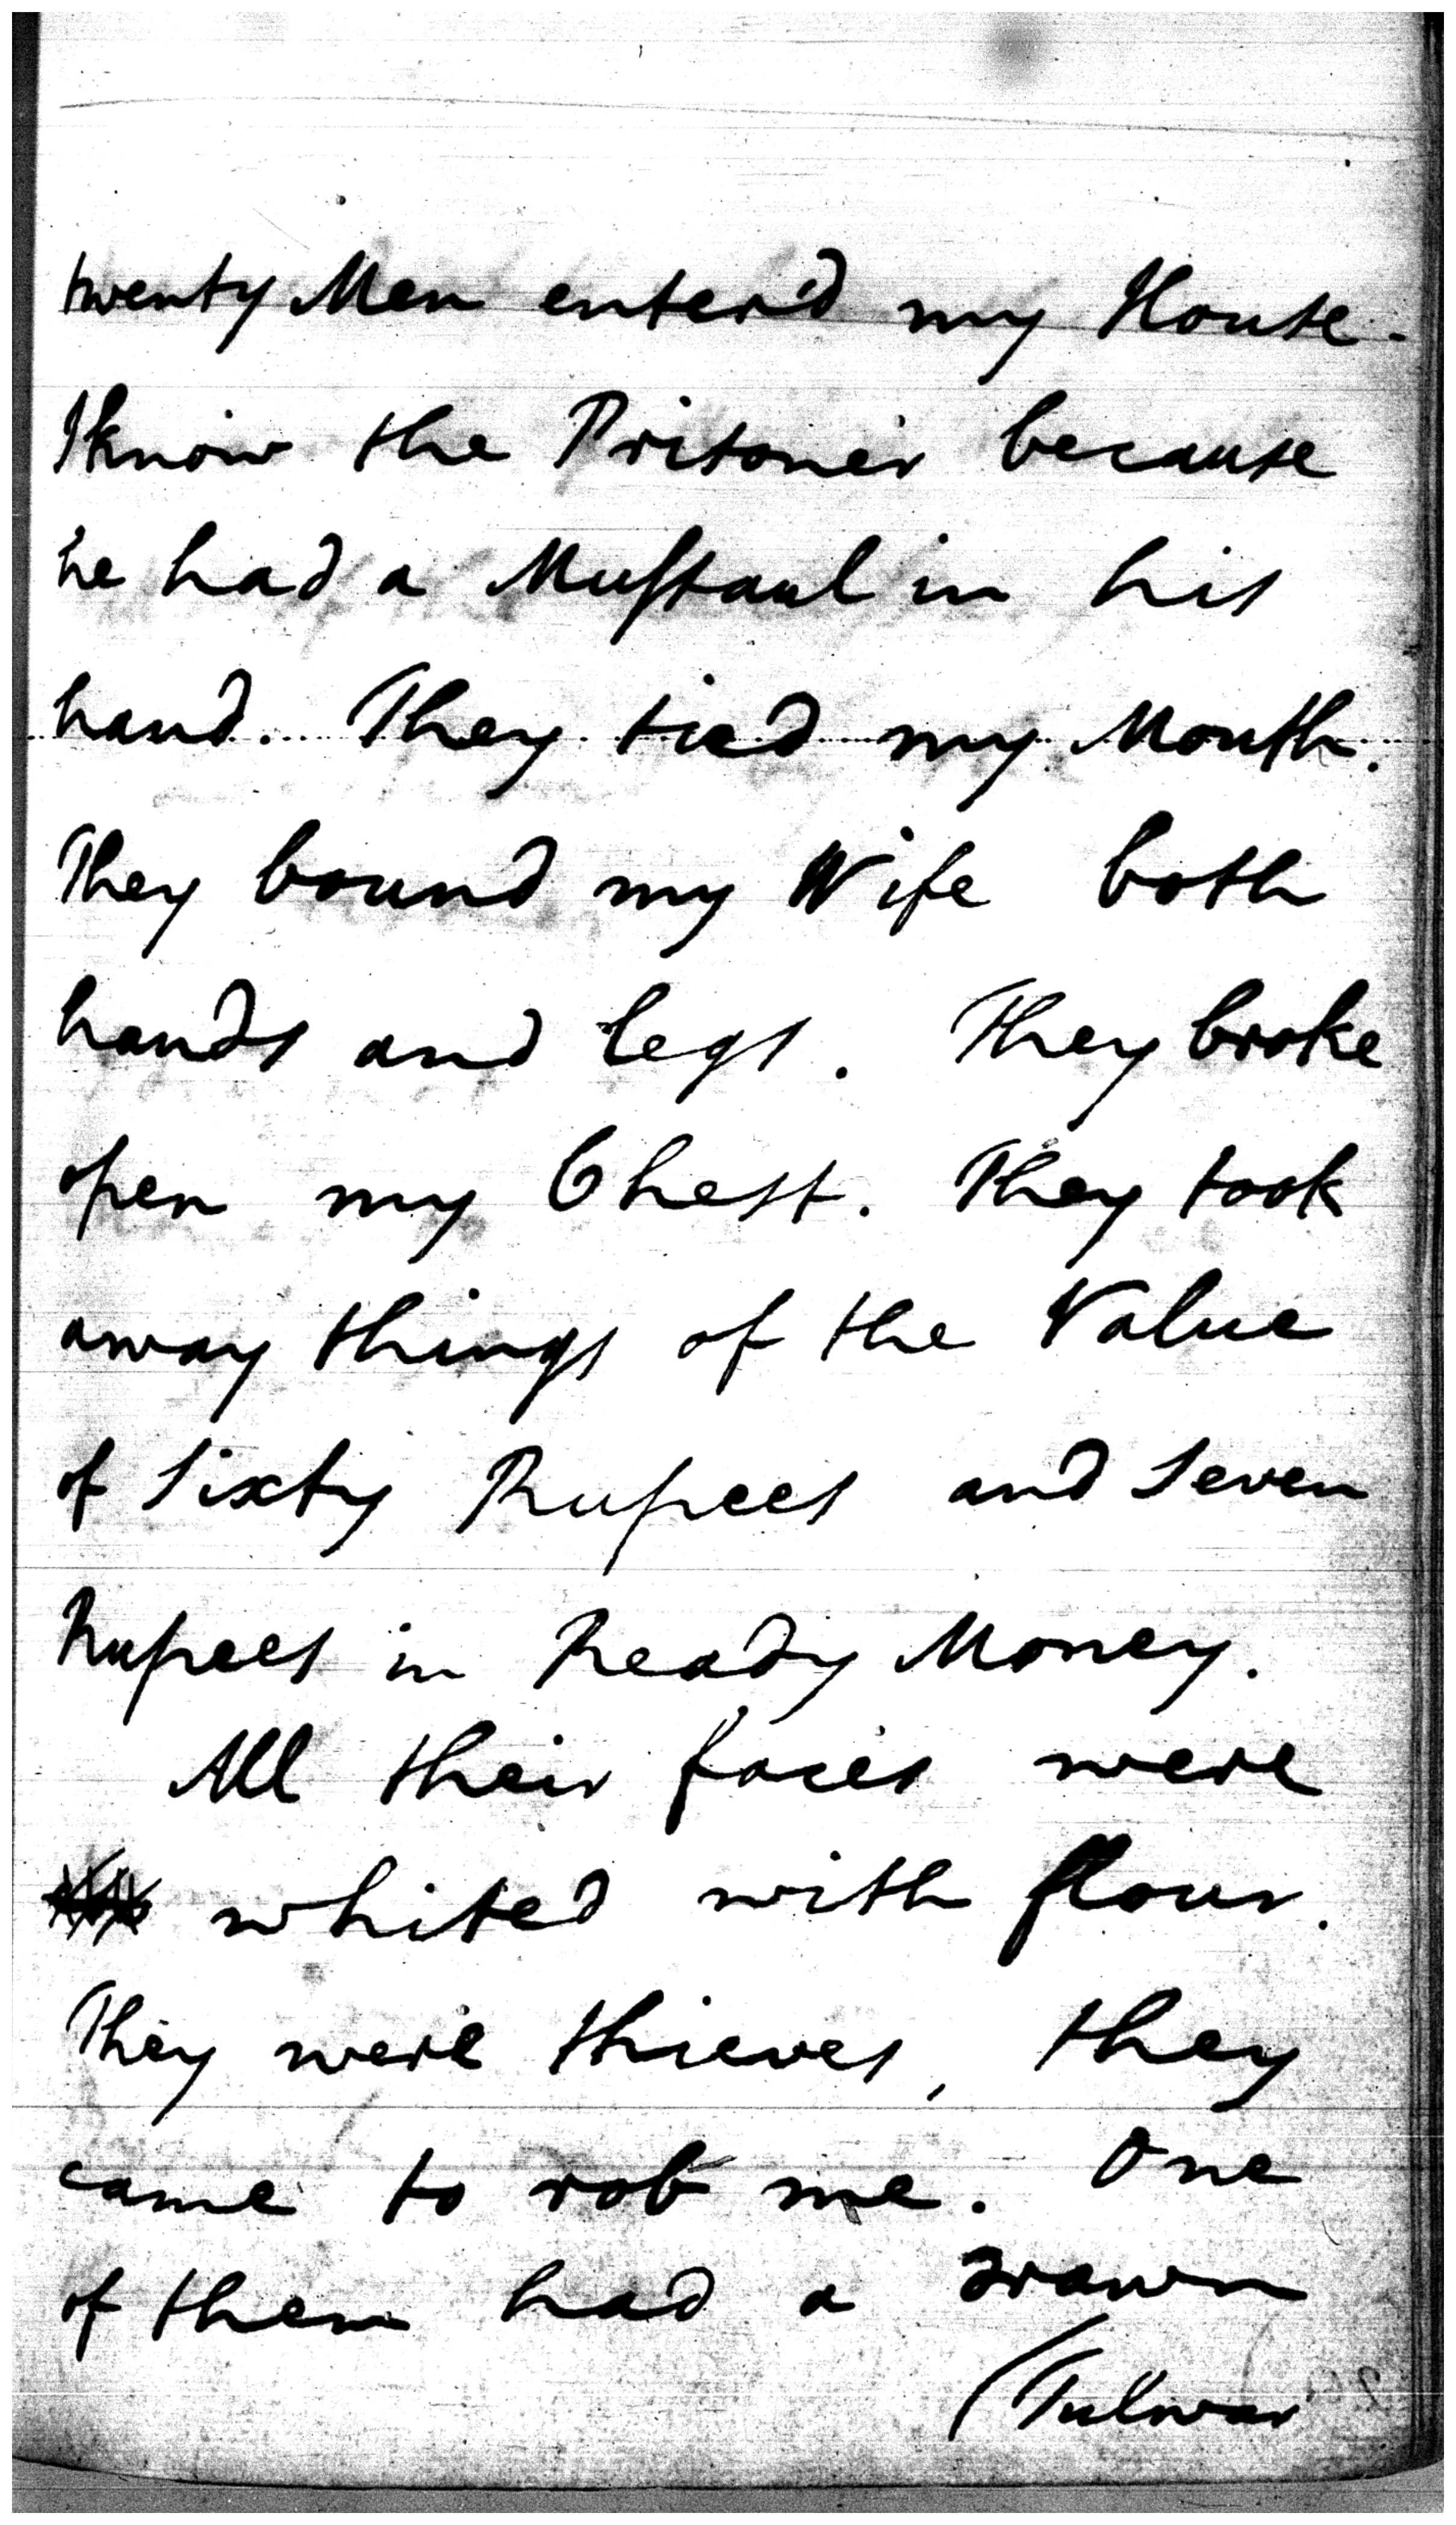 twenty Men enter'd my House.
I know the Prisoner because
he had a Mussaul in his
hand. They tied my Mouth.
They bound my Wife both
hands and legs. They broke
open my Chest. They took
away things of the Value
of Sixty Rupees and Seven
Rupees in Ready Money.
All their faces were
whited with flour.
They were thieves, they
came to rob me. One
of them had a drawn
(Tulwar